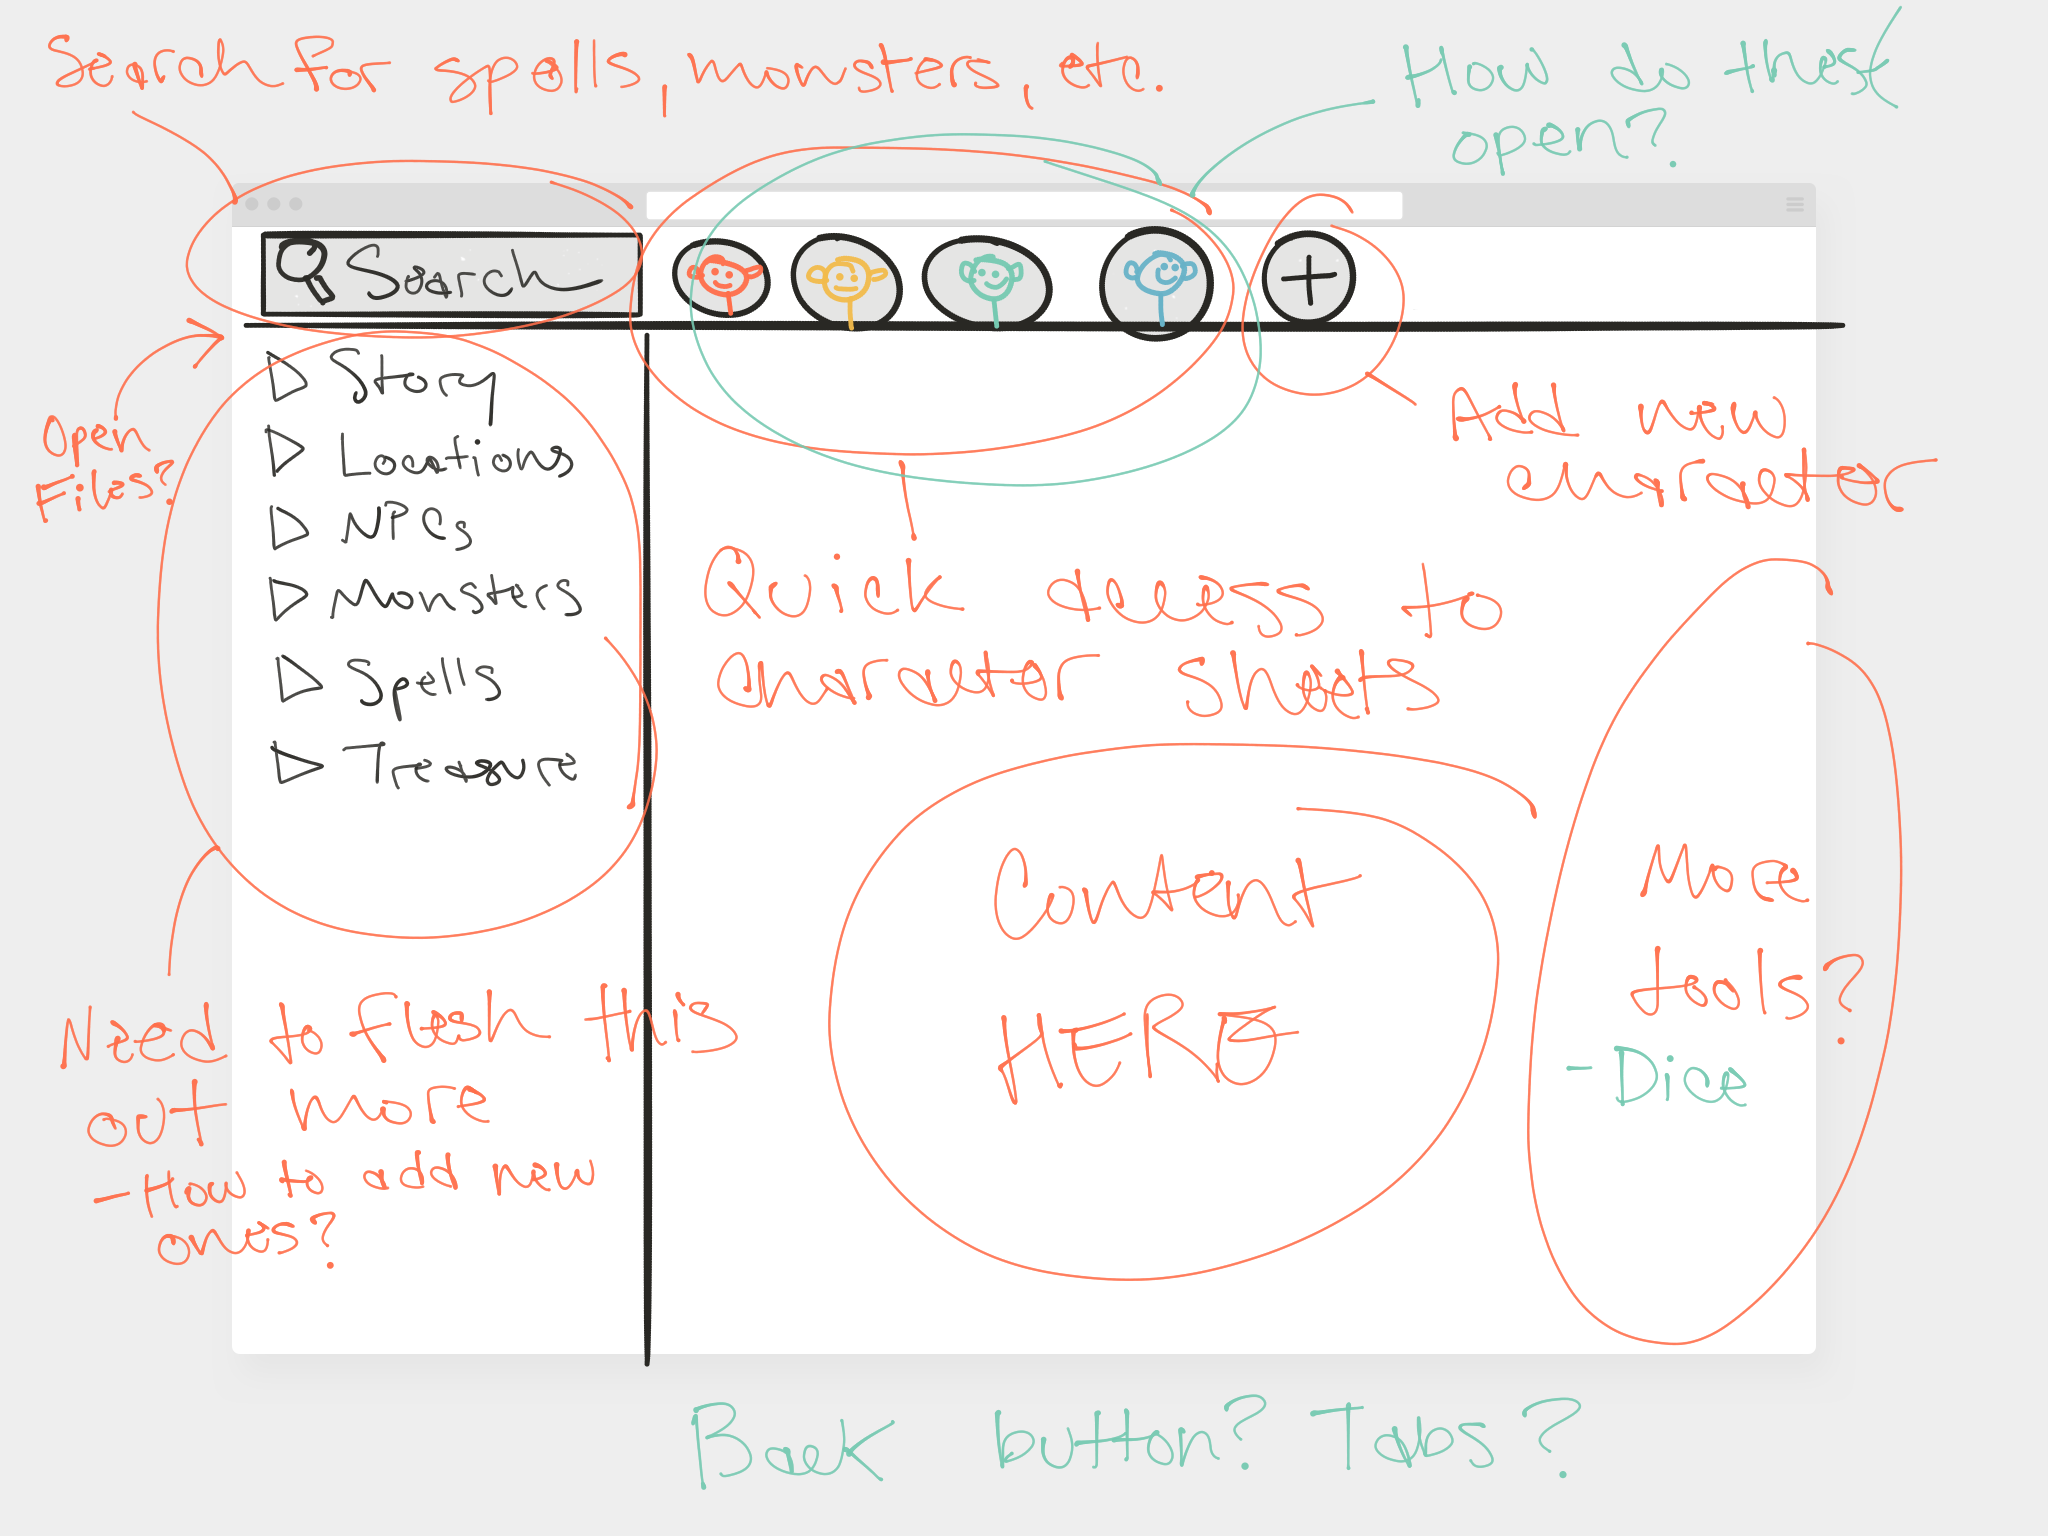 Search for spells, monsters, etc.
How do these
open?
Search
Story
Locations
NPCs
Monsters
Spells
Treasure
Open
Files?
Add new
character
Quick access to
character sheets
Content
HERE
More
tools?
- Dice
Need to flesh this
out more
- How to add new
ones?
Back button? Tabs?